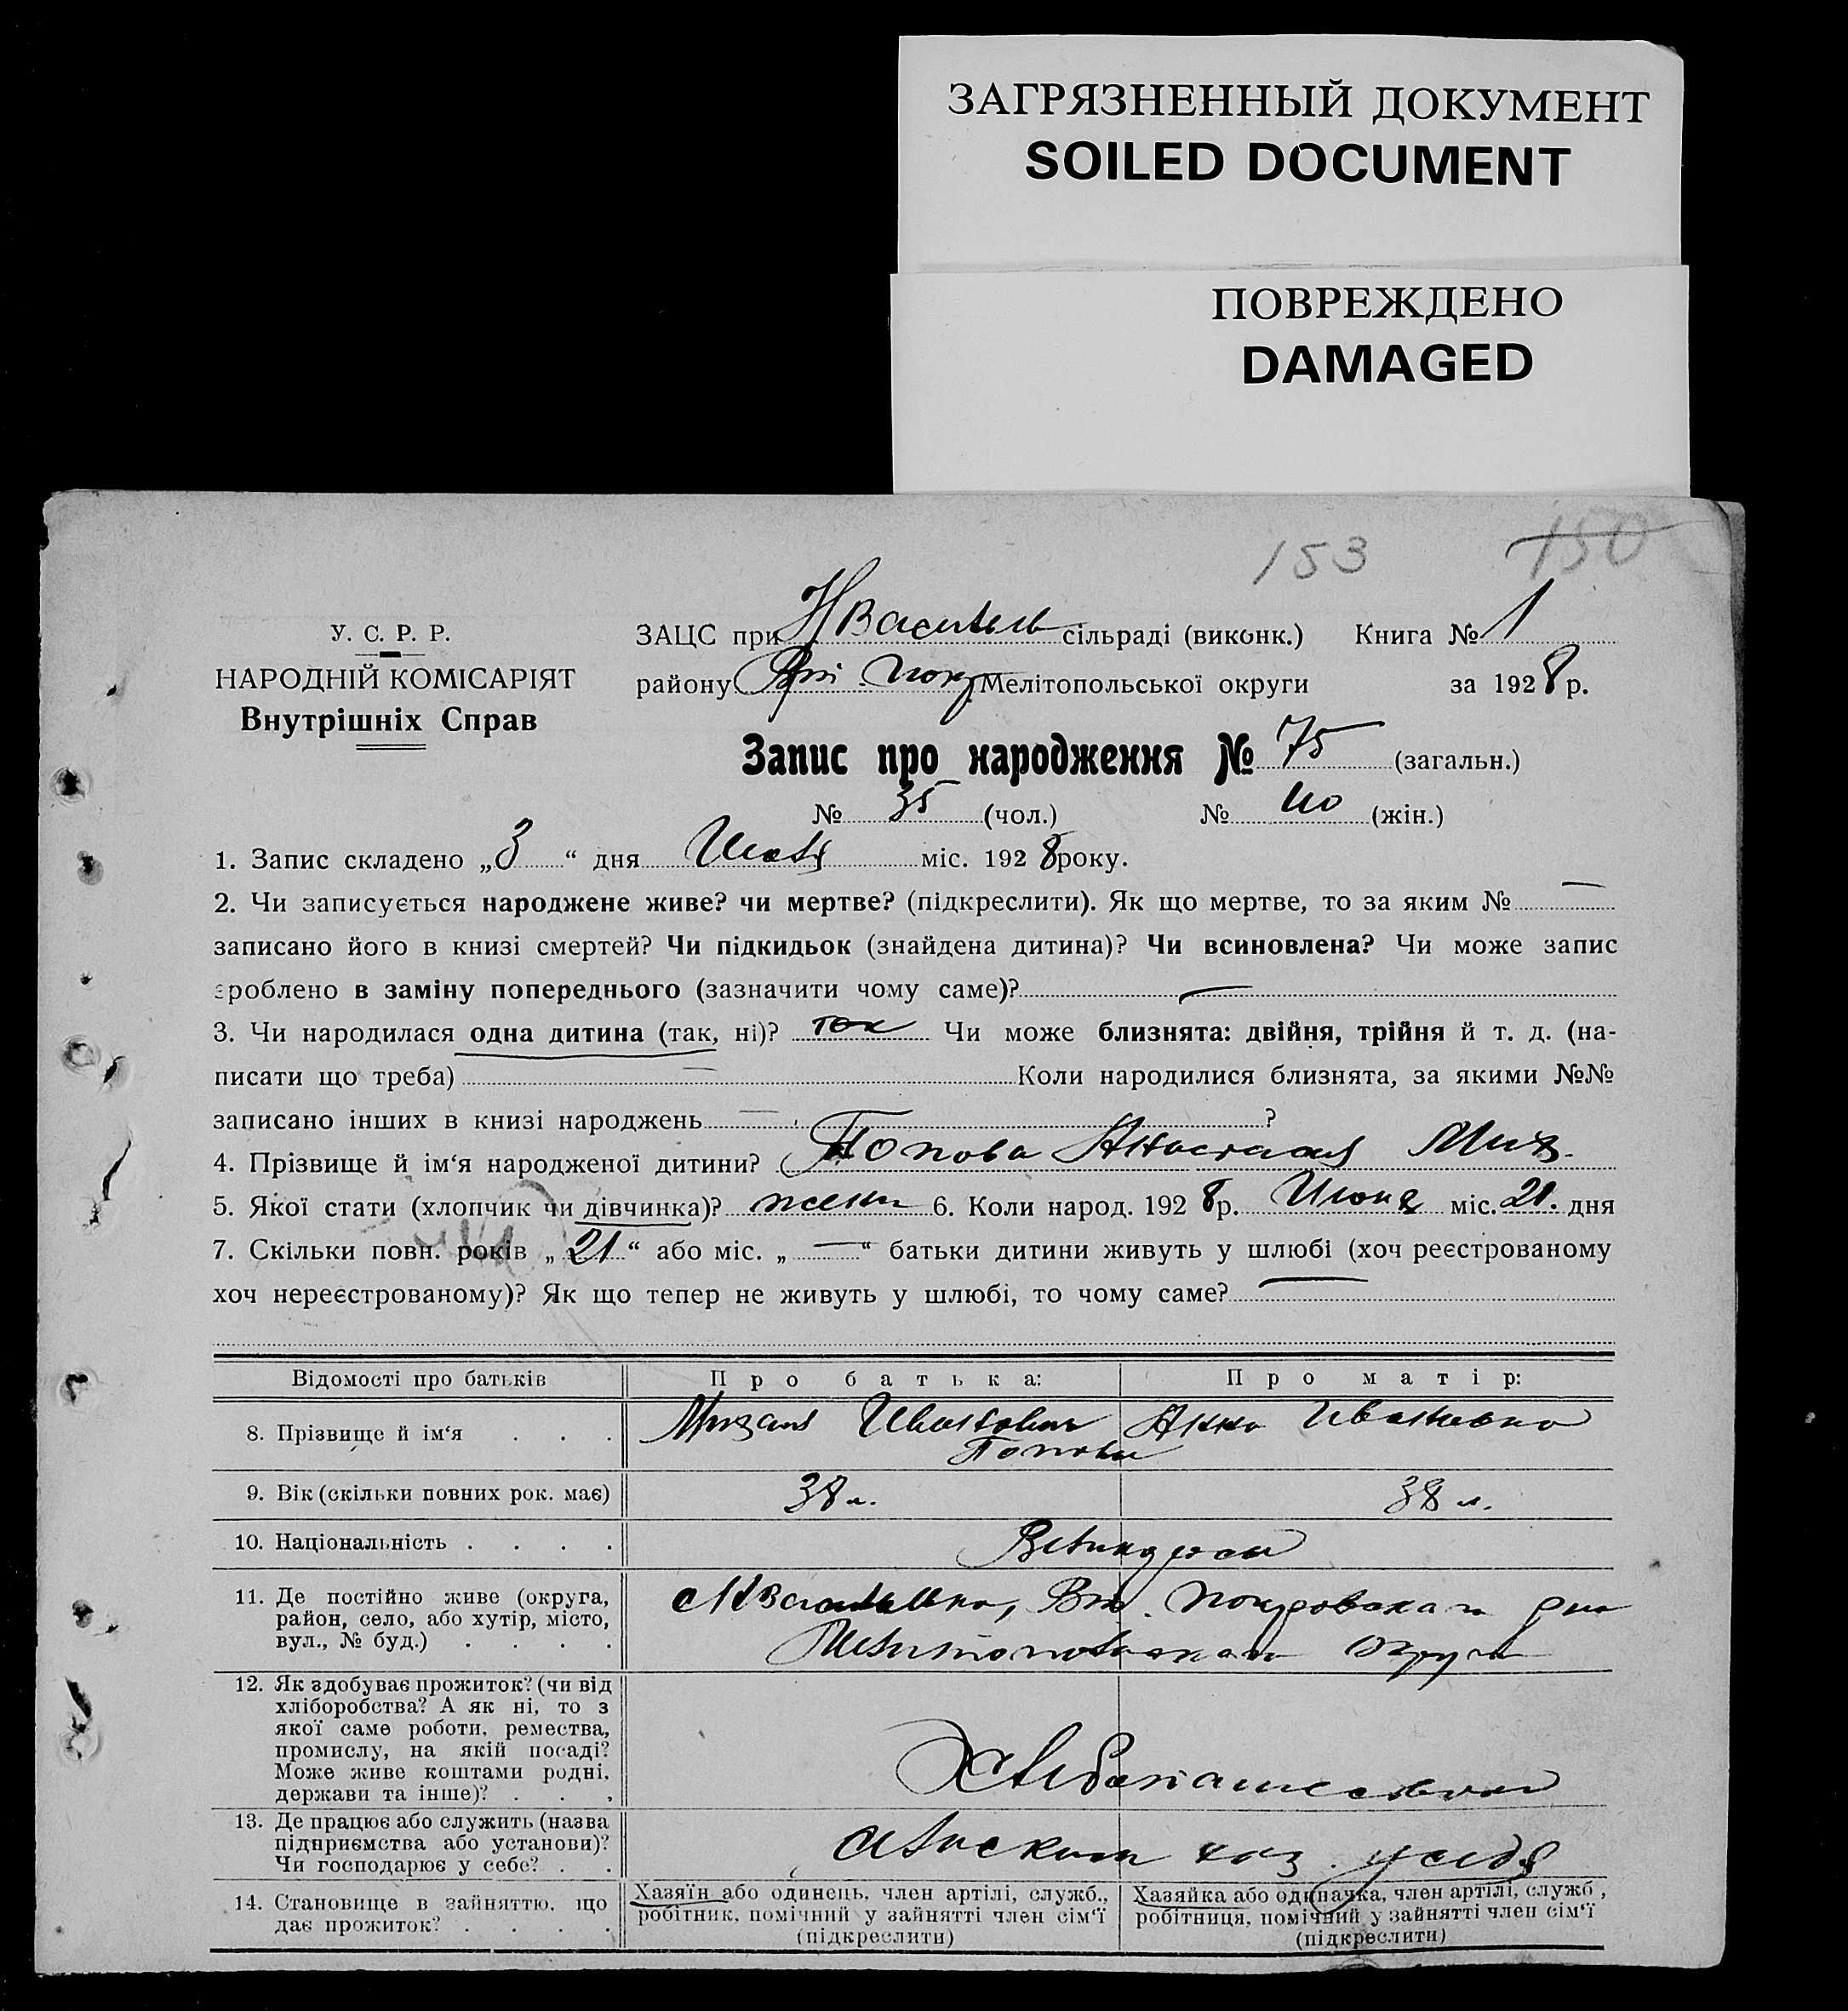 ЗАГРЯЗНЕННЫЙ ДОКУМЕНТ
SOILED DOCUMENT
ПОВРЕЖДЕНО
DAMAGED
153 150
У. С. Р. Р.
НАРОДНІЙ КОМІСАРІЯТ
Внутрішніх Справ
ЗАЦС при НВасильев сільраді (виконк.) Книга № 1
району Мелітопольської округи за 1928 р.
Запис про народження № 75 (загальн.)
№ 35 (чол.) № 40 (жін.)
1. Запис складено „3“ дня Июля міс. 1928 року.
2. Чи записується народжене живе? чи мертве? (підкреслити). Як що мертве, то за яким № —
записано його в книзі смертей? Чи підкидьок (знайдена дитина)? Чи всиновлена? Чи може запис
зроблено в заміну попереднього (зазначити чому саме)? —
3. Чи народилася одна дитина (так, ні)? так Чи може близнята: двійня, трійня й т. д. (на-
писати що треба) — Коли народилися близнята, за якими №№
записано інших в книзі народжень — ?
4. Прізвище й ім‘я народженої дитини? Попова Анастасия Мих.
5. Якої стати (хлопчик чи дівчинка)? женск 6. Коли народ. 1928 р. Июня міс. 21. дня
7. Скільки повн. років „21“ або міс. „—“ батьки дитини живуть у шлюбі (хоч реєстрованому
хоч нереєстрованому)? Як що тепер не живуть у шлюбі, то чому саме? —
Відомості про батьків Про батька: Про матір:
8. Прізвище й ім‘я . . . Михаил Иванович Анна Ивановна
Поповы
9. Вік (скільки повних рок. має) 38 л. 38 л.
10. Національність . . . .
11. Де постійно живе (округа,
район, село, або хутір, місто,
вул., № буд.) . . . .
с НВасильевка, Вт. Покровского рна
Мелитопольского округа
12. Як здобуває прожиток? (чи від
хліборобства? А як ні, то з
якої саме роботи, ремества,
промислу, на якій посаді?
Може живе коштами родні,
держави та інше)? . . .
Хлебопашеством
13. Де працює або служить (назва
підприємства або установи)?
Чи господарює у себе? . .
сельским хоз. у себя
14. Становище в зайняттю, що
дає прожиток? . . . .
Хазяїн або одинець, член артілі, служб.,
робітник, помічний у зайнятті член сім‘ї
(підкреслити)
Хазяйка або одиначка, член артілі, служб.,
робітниця, помічний у зайнятті член сім‘ї
(підкреслити)